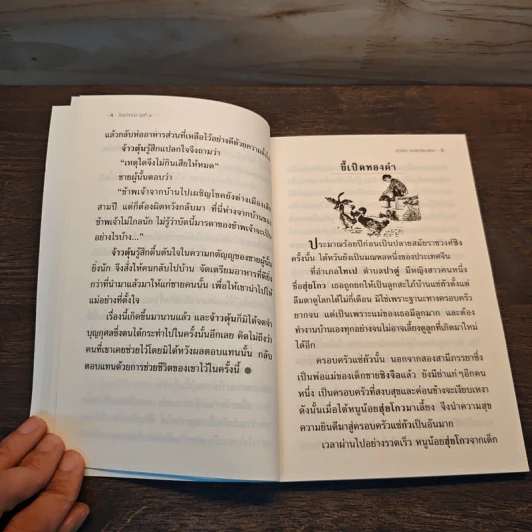 แล้วกลับห่ออาหารส่วนที่เหลือไว้อย่างดีด้วยความ
จ้าวตุ้นรู้สึกแปลกใจจึงถามว่า
“เหตุใดจึงไม่กินเสียให้หมด”
ชายผู้นั้นตอบว่า
“ข้าพเจ้าจากบ้านไปเผชิญโชคยังต่างเมือง
สามปี แต่ก็ต้องผิดหวังกลับมา ที่นี่ห่างจากบ้านของ
ข้าพเจ้าไม่ไกลนัก ไม่รู้ว่าบัดนี้มารดาของข้าพเจ้าจะเป็น
อย่างไรบ้าง...”
จ้าวตุ้นรู้สึกตื้นตันใจในความกตัญญูของชายผู้นั้น
ยิ่งนัก จึงสั่งให้คนกลับไปบ้าน จัดเตรียมอาหารที่ดียิ่ง
กว่าที่นำมาแล้วมาให้แก่ชายคนนั้น เพื่อให้เขานำไปให้
แม่อย่างที่ตั้งใจ
เรื่องนี้เกิดขึ้นมานานแล้ว และจ้าวตุ้นก็มิได้จดจำ
บุญกุศลซึ่งตนได้กระทำไปในครั้งนั้นอีกเลย คิดไม่ถึงว่า
คนที่เขาเคยช่วยไว้โดยมิได้หวังผลตอบแทนนั้น กลับ
ตอบแทนด้วยการช่วยชีวิตของเขาไว้ในครั้งนี้
ขี้เป็ดทองคำ
ประมาณร้อยปีก่อนเป็นปลายสมัยราชวงศ์ชิง
ครั้งนั้น ไต้หวันยังเป็นมณฑลหนึ่งของประเทศจีน
ที่อำเภอไทเป ตำบลปาตู่ มีหญิงสาวคนหนึ่ง
ชื่อสุ่ยโกว เธอถูกยกให้เป็นลูกสะใภ้บ้านแซ่กัวตั้งแต่
ลืมตาดูโลกได้ไม่กี่เดือน มิใช่เพราะฐานะทางครอบครัว
ยากจน แต่เป็นเพราะแม่ของเธอมีลูกมาก และต้อง
ทำงานบ้านเองทุกอย่างจนไม่อาจเลี้ยงดูลูกที่เกิดมาใหม่
ได้อีก
ครอบครัวแซ่กัวนั้น นอกจากสองสามีภรรยาซึ่ง
เป็นพ่อแม่ของเด็กชายชิงจือแล้ว ยังมีย่าแก่ๆ อีกคน
หนึ่ง เป็นครอบครัวที่สงบสุขและค่อนข้างจะเงียบเหงา
ดังนั้นเมื่อได้หนูน้อยสุ่ยโกวมาเลี้ยง จึงนำความสุข
ความยินดีมาสู่ครอบครัวแซ่กัวเป็นอันมาก
เวลาผ่านไปอย่างรวดเร็ว หนูน้อยสุ่ยโกวจากเด็ก